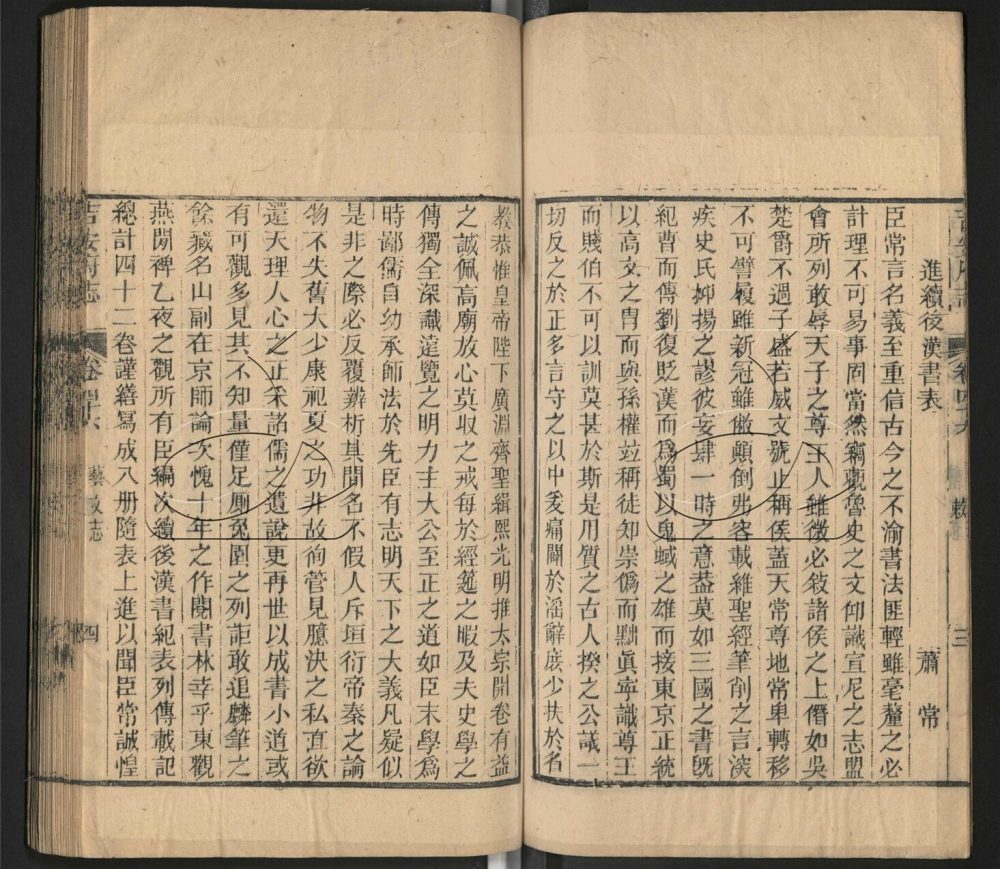 進續後漢書表
蕭常
臣常言名義至重信古今之不渝書法匪輕雖毫釐之必
計理不可易事固當然竊觀魯史之文仰識宣尼之志盟
會所列敢辱天子之尊王人雖微必敘諸侯之上僭如吳
楚爵不過子盛若威文號止稱侯蓋天常尊地常卑轉移
不可譬履雖新冠雖敝顛倒弗容載維聖經筆削之言深
疾史氏抑揚之謬彼妄肆一時之意葢莫如三國之書旣
紀曹而傳劉復貶漢而爲蜀以鬼蜮之雄而接東京正統
以高文之胄而與孫權竝稱徒知崇僞而黜眞寧識尊王
而賤伯不可以訓莫甚於斯是用質之古人揆之公議一
切反之於正多言守之以中爰痛闢於滛辭庶少扶於名
教恭惟皇帝陛下廣淵齊聖緝熙光明推太宗開卷有益
之誠佩高廟放心莫取之戒每於經筵之暇及夫史學之
傳獨全深識達覽之明力主大公至正之道如臣末學爲
時鄙儒自幼承師法於先臣有志明天下之大義凡疑似
是非之際必反覆辨析其間名不假人斥垣衍帝秦之論
物不失舊大少康祀夏之功非故徇管見臆決之私直欲
還天理人心之正采諸儒之遺說更再世以成書小道或
有可觀多見其不知量僅足厠兔園之列詎敢追麟筆之
餘藏名山副在京師論次愧十年之作閣書林幸乎東觀
燕閒裨乙夜之觀所有臣編次續後漢書紀表列傳載記
總計四十二卷謹繕寫成八册隨表上進以聞臣常誠惶
吉安府志
卷四十六
藝文志
三
四